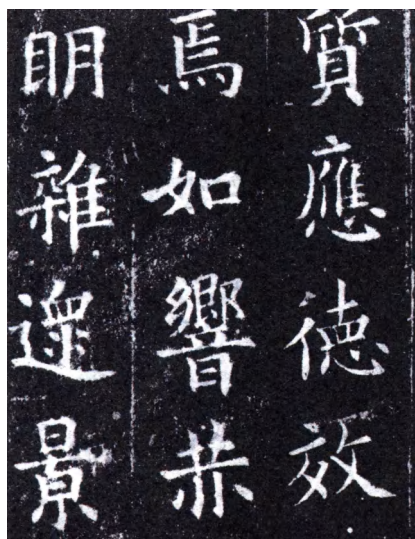 質應德效
焉如響赫
明雜遝景